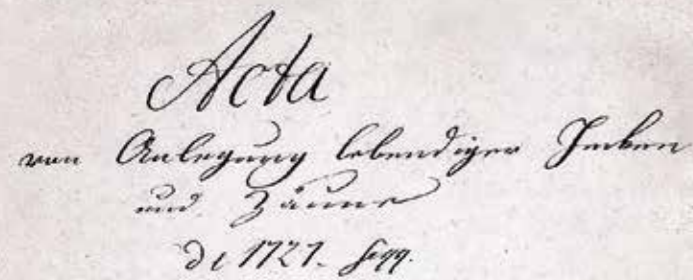 Acta
von Anlegung lebendiger Hecken
und Zäune
de 1727. seqq.